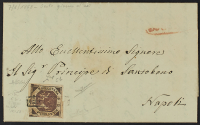 Allo Eccellentissimo Signore
Il Sigr Principe di Santobono
Napoli